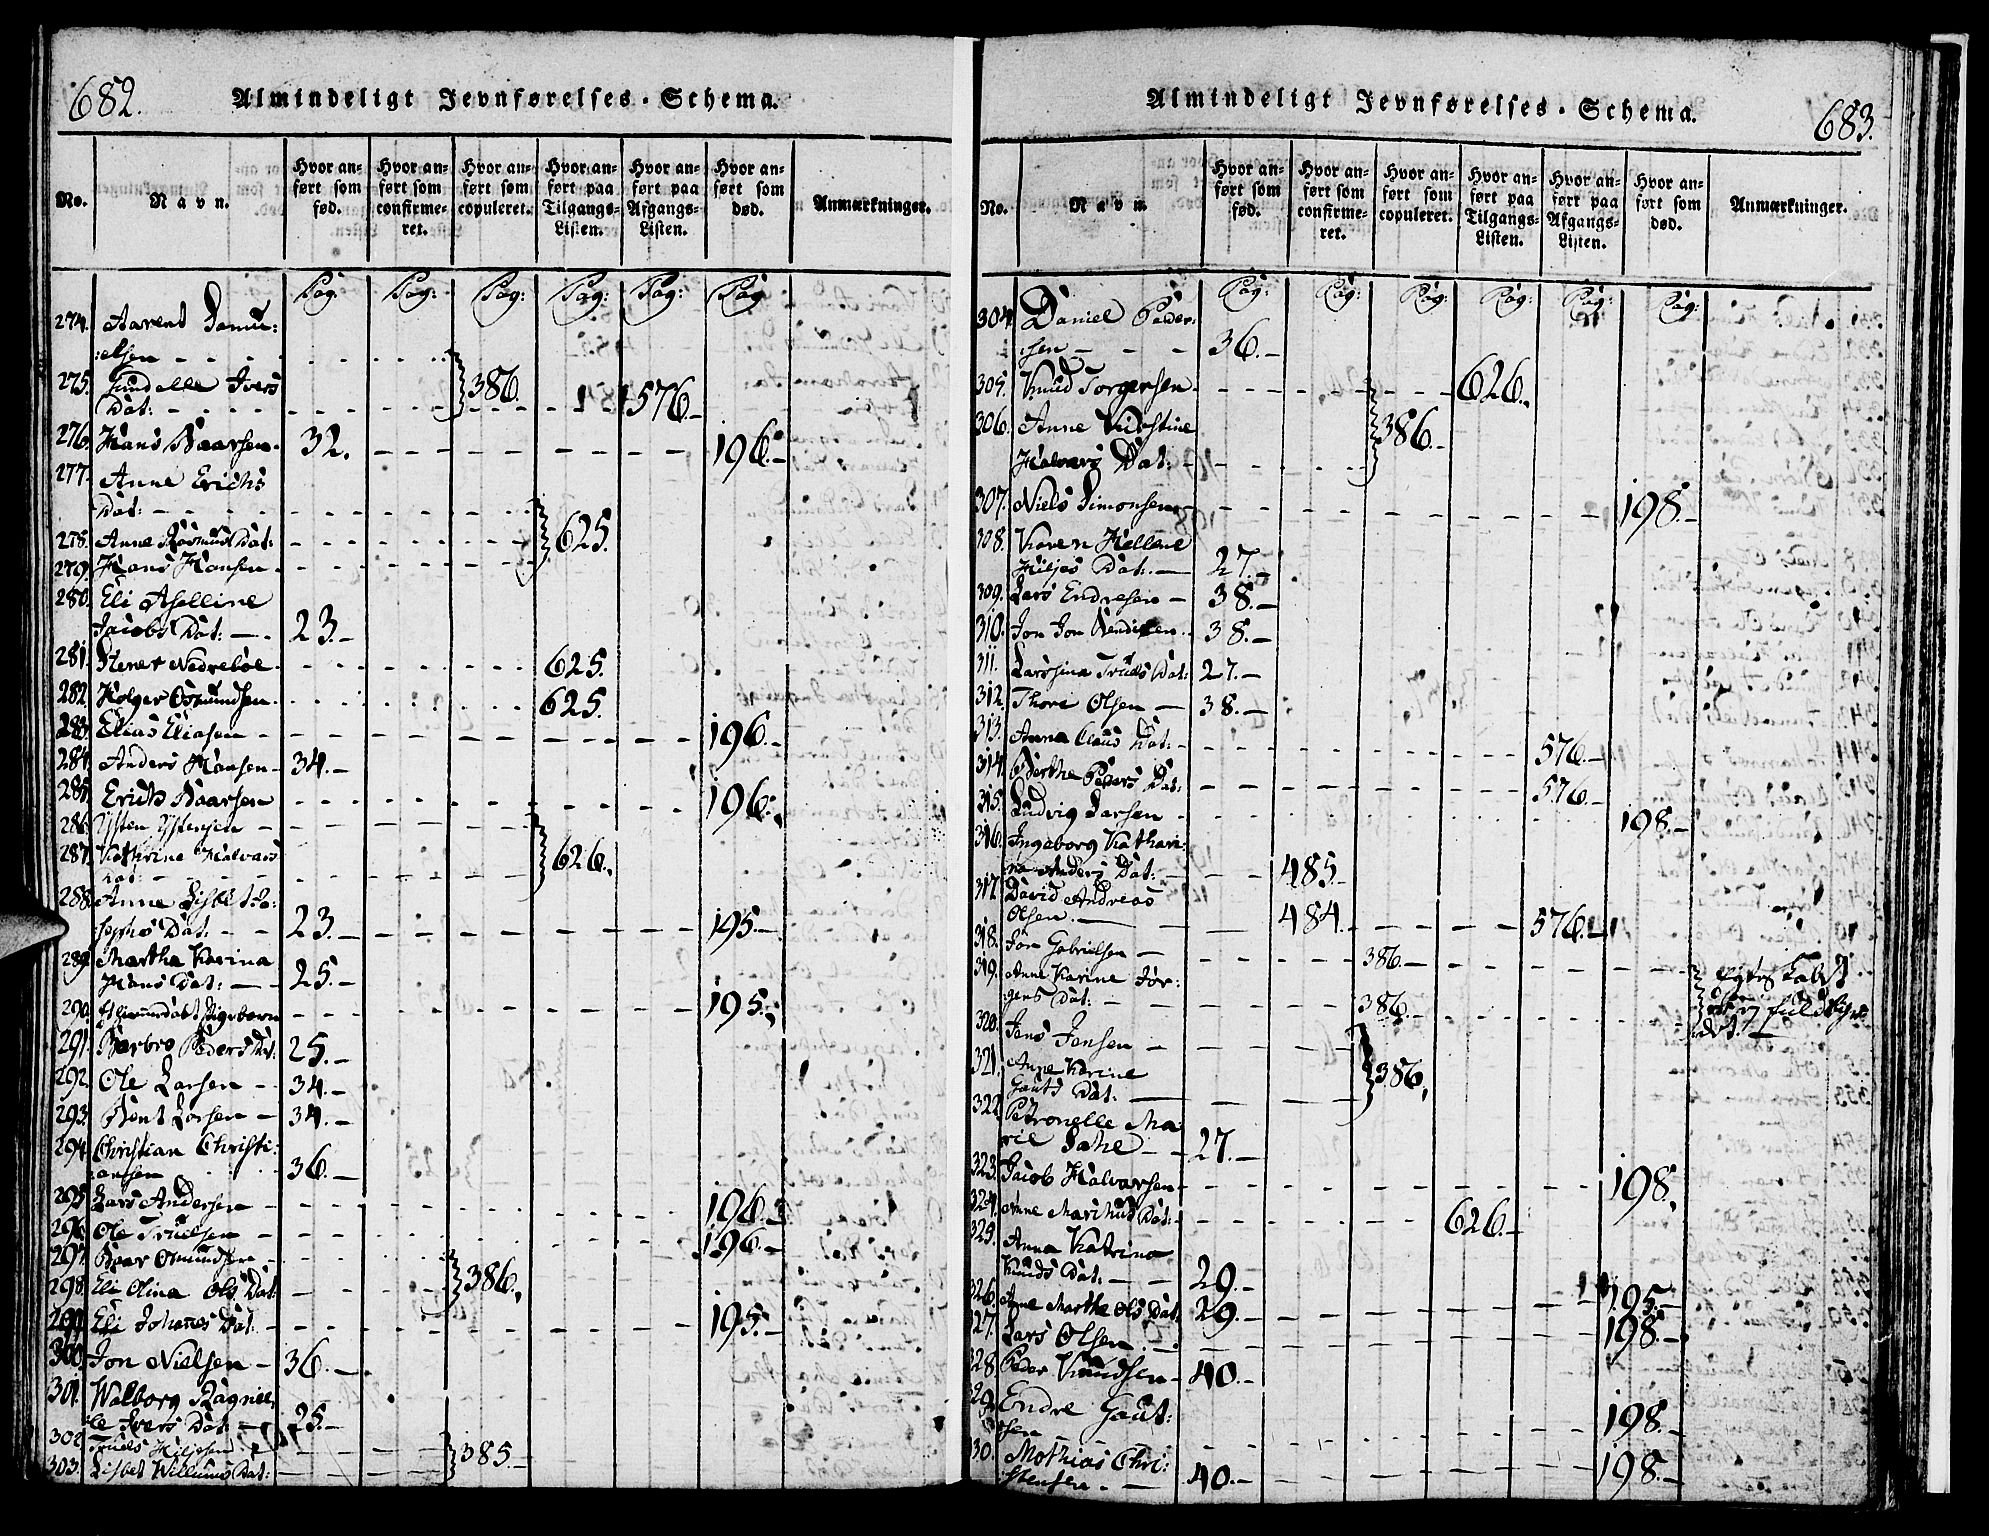 682.
Almindeligt Jevnførelses-Schema.
No.
Navn.
Hvor anført som fød.
Hvor anført som confirmeret.
Hvor anført som copuleret.
Hvor anført paa Tilgangs-Listen.
Hvor anført paa Afgangs-Listen.
Hvor anført som død.
Anmærkninger.
Pag. Pag: Pag: Pag: Pag: Pag
274. Aarent Samu:
:elsen
275. Gundelle Ivers
Dat: 386. 576.
276. Hans Baarsen 32. 196.
277. Anne Erichs
Dat:
278. Anne Rasmus Dat: 625.
279. Hans Hansen
280. Eli Aselline
Jacobs Dat: 23.
281. Nedrebøe 625.
282. Holger Osmundsen 625.
283. Elias Eliasen 196.
284. Anders Hansen 34.
285. Erich Baarsen 196.
286. Ysten Ystensen
287. Kathrine Halvars
Dat: 626.
288. Anne Lisbet Jo:
:sephs Dat: 23. 195.
289. Martha Karina
Hans Dat: 25.
290. 195.
291. Barbro Peders Dat: 25.
292. Ole Larsen 34.
293. Bent Larsen 34.
294. Christian Christi:
:ansen 36.
295. Lars Andersen 196.
296. Ole Truelsen 196.
297. Baar Osmundsen
298. Eli Olina Ols Dat: 386.
299. Eli Johannes Dat 195.
300. Jon Nielsen 36.
301. Walborg Ragniel:
:le Ivers Dat: 25.
302. Truels Hiljesen
303. Lisbet Willums Dat: 385.
683.
Almindeligt Jevnførelses-Schema.
No.
Navn
Hvor anført som fød.
Hvor anført som confirmeret.
Hvor anført som copuleret.
Hvor anført paa Tilgangs-Listen.
Hvor anført paa Afgangs-Listen.
Hvor anført som død.
Anmærkninger.
Pag: Pag: Pag: Pag: Pag: Pag:
304. Daniel Peder:
:sen 36.
305. Knud Torgersen 626.
306. Anne Kirstine
Halvors Dat: 386.
307. Niels Simonsen 198.
308. Karen Hellene
Hiljes Dat: 27.
309. Lars Endresen 38.
310. Jon Jon 38.
311. Larssina Truels Dat: 27.
312. Thore Olsen 38.
313. Anna Claus Dat: 576.
314. Berthe Peders Dat: 576.
315. Ludvig Larsen 198.
316. Ingeborg Kathari:
:na Anders Dat: 485
317. David Andreas
Olsen. 484. 576.
318. Jon Gabrielsen 386.
319. Anne Karine Jør:
:gens Dat: 386.
320. Jens Jensen
321. Anne Karine
Gauts Dat: 386.
322. Petronelle Ma:
rie 27.
323. Jacob Halvorsen 198.
324. Anne Dat: 626.
325. Anna Katrina
Knuds Dat: 29.
326. Anne Marthe Ols Dat: 29. 195.
327. Lars Olsen 198.
328. Peder Knudsen 40.
29. Endre Gaut:
sen 198.
30. Mathias Chri:
stensen 40. 198.